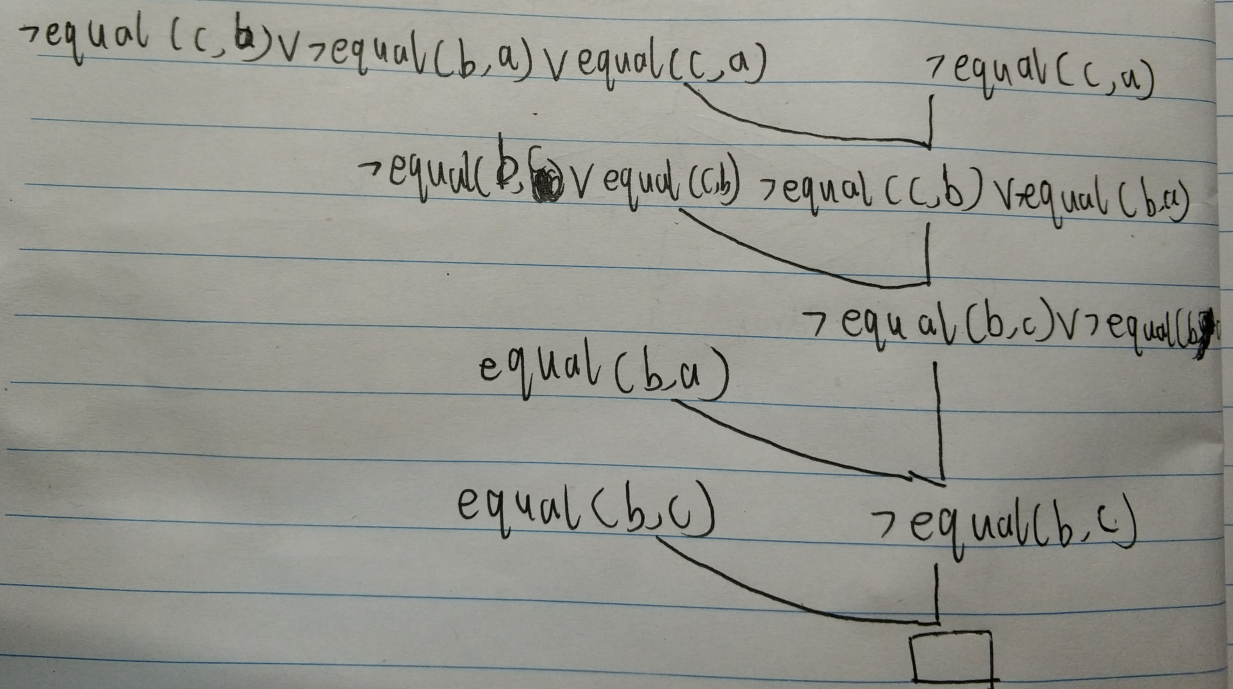 ¬equal (c,b)∨¬equal(b,a)∨equal(c,a) ¬equal(c,a)
¬equal(b,c)∨equal(c,b) ¬equal(c,b)∨¬equal(b,a)
¬equal(b,c)∨¬equal(b,
equal(b,a)
equal(b,c) ¬equal(b,c)